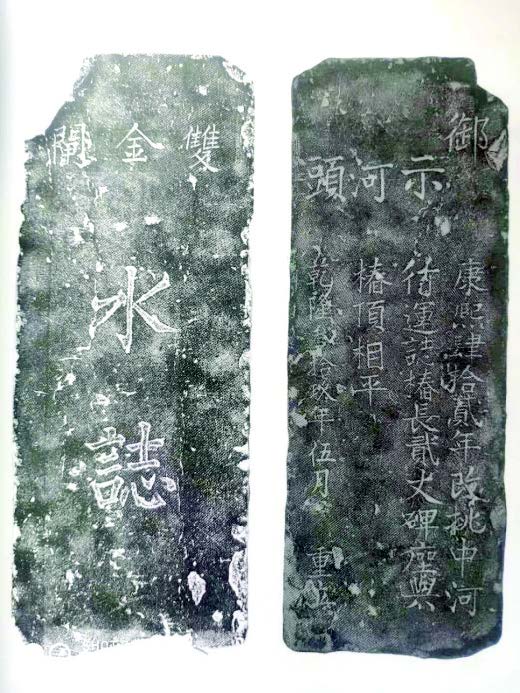 御
示河頭
康熙肆拾貳年改挑中河
偹運誌樁長貳丈碑與
樁頂相平
乾隆拾年伍月 重
雙金閘
水誌